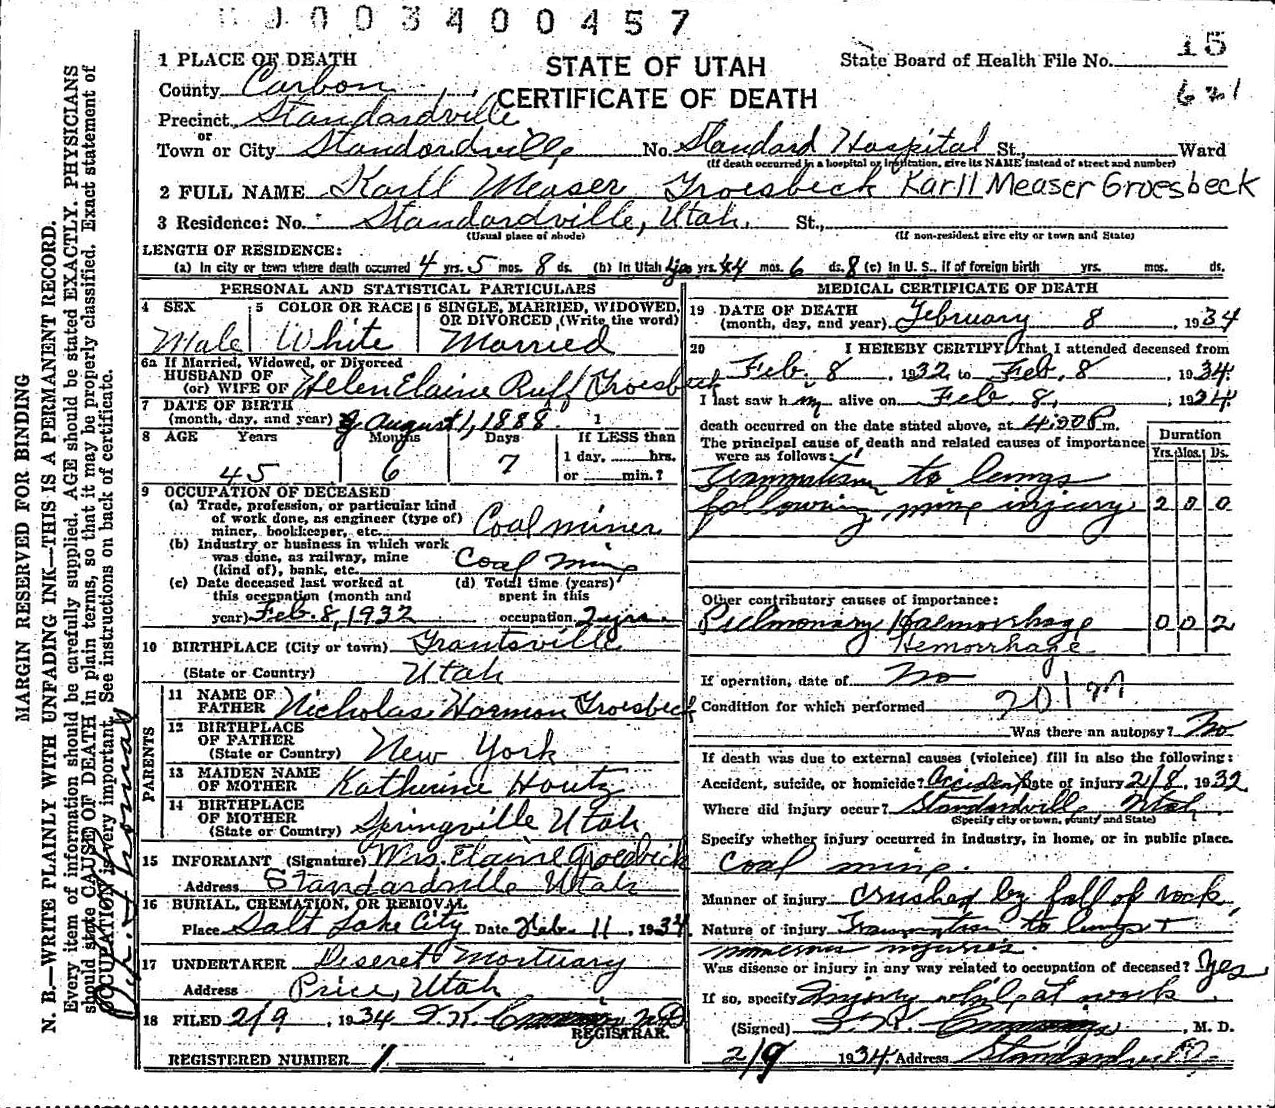 0003400457
15
621
1 PLACE OF DEATH
STATE OF UTAH
CERTIFICATE OF DEATH
State Board of Health File No.
County Carbon
Precinct Standardville
or
Town or City Standardville No. Standard Hospital St., Ward
(If death occurred in a hospital or institution, give its NAME instead of street and number)
2 FULL NAME Karll Measer Groesbeck Karll Measer Groesbeck
3 Residence: No. Standardville, Utah. St.,
(Usual place of abode) (If non-resident give city or town and State)
LENGTH OF RESIDENCE:
(a) In city or town where death occurred 4 yrs. 5 mos. 8 ds. (b) In Utah yrs. 44 mos. 6 ds. 8 (c) In U. S., if of foreign birth yrs. mos. ds.
PERSONAL AND STATISTICAL PARTICULARS
4 SEX Male
5 COLOR OR RACE White
6 SINGLE, MARRIED, WIDOWED, OR DIVORCED, (Write the word) Married
6a If Married, Widowed, or Divorced
HUSBAND OF
(or) WIFE OF Helen Elaine Ruff Groesbeck
7 DATE OF BIRTH
(month, day, and year) August 1, 1888.
8 AGE Years Months Days If LESS than
45 6 7 1 day, hrs.
or min.?
9 OCCUPATION OF DECEASED
(a) Trade, profession, or particular kind
of work done, as engineer (type of)
miner, bookkeeper, etc. Coal miner
(b) Industry or business in which work
was done, as railway, mine
(kind of), bank, etc. Coal Mine
(c) Date deceased last worked at
this occupation (month and
year) Feb. 8, 1932
(d) Total time (years)
spent in this
occupation 2 yrs.
10 BIRTHPLACE (City or town) Grantsville
(State or Country) Utah
PARENTS
11 NAME OF
FATHER Nicholas Harmon Groesbeck
12 BIRTHPLACE
OF FATHER
(State or Country) New York
13 MAIDEN NAME
OF MOTHER Katherine Houtz
14 BIRTHPLACE
OF MOTHER
(State or Country) Springville Utah
15 INFORMANT (Signature) Mrs. Elaine Groesbeck
Address Standardville Utah
16 BURIAL, CREMATION, OR REMOVAL
Place Salt Lake City Date Feb. 11, 1934
17 UNDERTAKER Deseret Mortuary
Address Price, Utah
18 FILED 2/9, 1934
REGISTRAR.
REGISTERED NUMBER 1
MEDICAL CERTIFICATE OF DEATH
19 DATE OF DEATH
(month, day, and year) February 8, 1934
20 I HEREBY CERTIFY, That I attended deceased from
Feb. 8, 1932 to Feb. 8, 1934
I last saw him alive on Feb 8, 1934
death occurred on the date stated above, at 4:00 P.m.
The principal cause of death and related causes of importance
were as follows: Duration
Yrs. Mos. Ds.
Traumatism to lungs
following mine injury. 2 0 0
Other contributory causes of importance:
Pulmonary Haemorrhage 0 0 2
Hemorrhage
If operation, date of No
Condition for which performed
Was there an autopsy? No
If death was due to external causes (violence) fill in also the following:
Accident, suicide, or homicide? Accident Date of injury 2/8, 1932
Where did injury occur? Standardville Utah
(Specify city or town, county and State)
Specify whether injury occurred in industry, in home, or in public place.
coal mine.
Manner of injury crushed by fall of rock
Nature of injury Traumatism to lungs +
numerous injuries.
Was disease or injury in any way related to occupation of deceased? Yes
If so, specify Injury while at work
(Signed) , M. D.
2/9 1934 Address Standardville
MARGIN RESERVED FOR BINDING
N. B.—WRITE PLAINLY WITH UNFADING INK—THIS IS A PERMANENT RECORD.
Every item of information should be carefully supplied. AGE should be stated EXACTLY. PHYSICIANS
should state CAUSE OF DEATH in plain terms, so that it may be properly classified. Exact statement of
OCCUPATION is very important. See instructions on back of certificate.